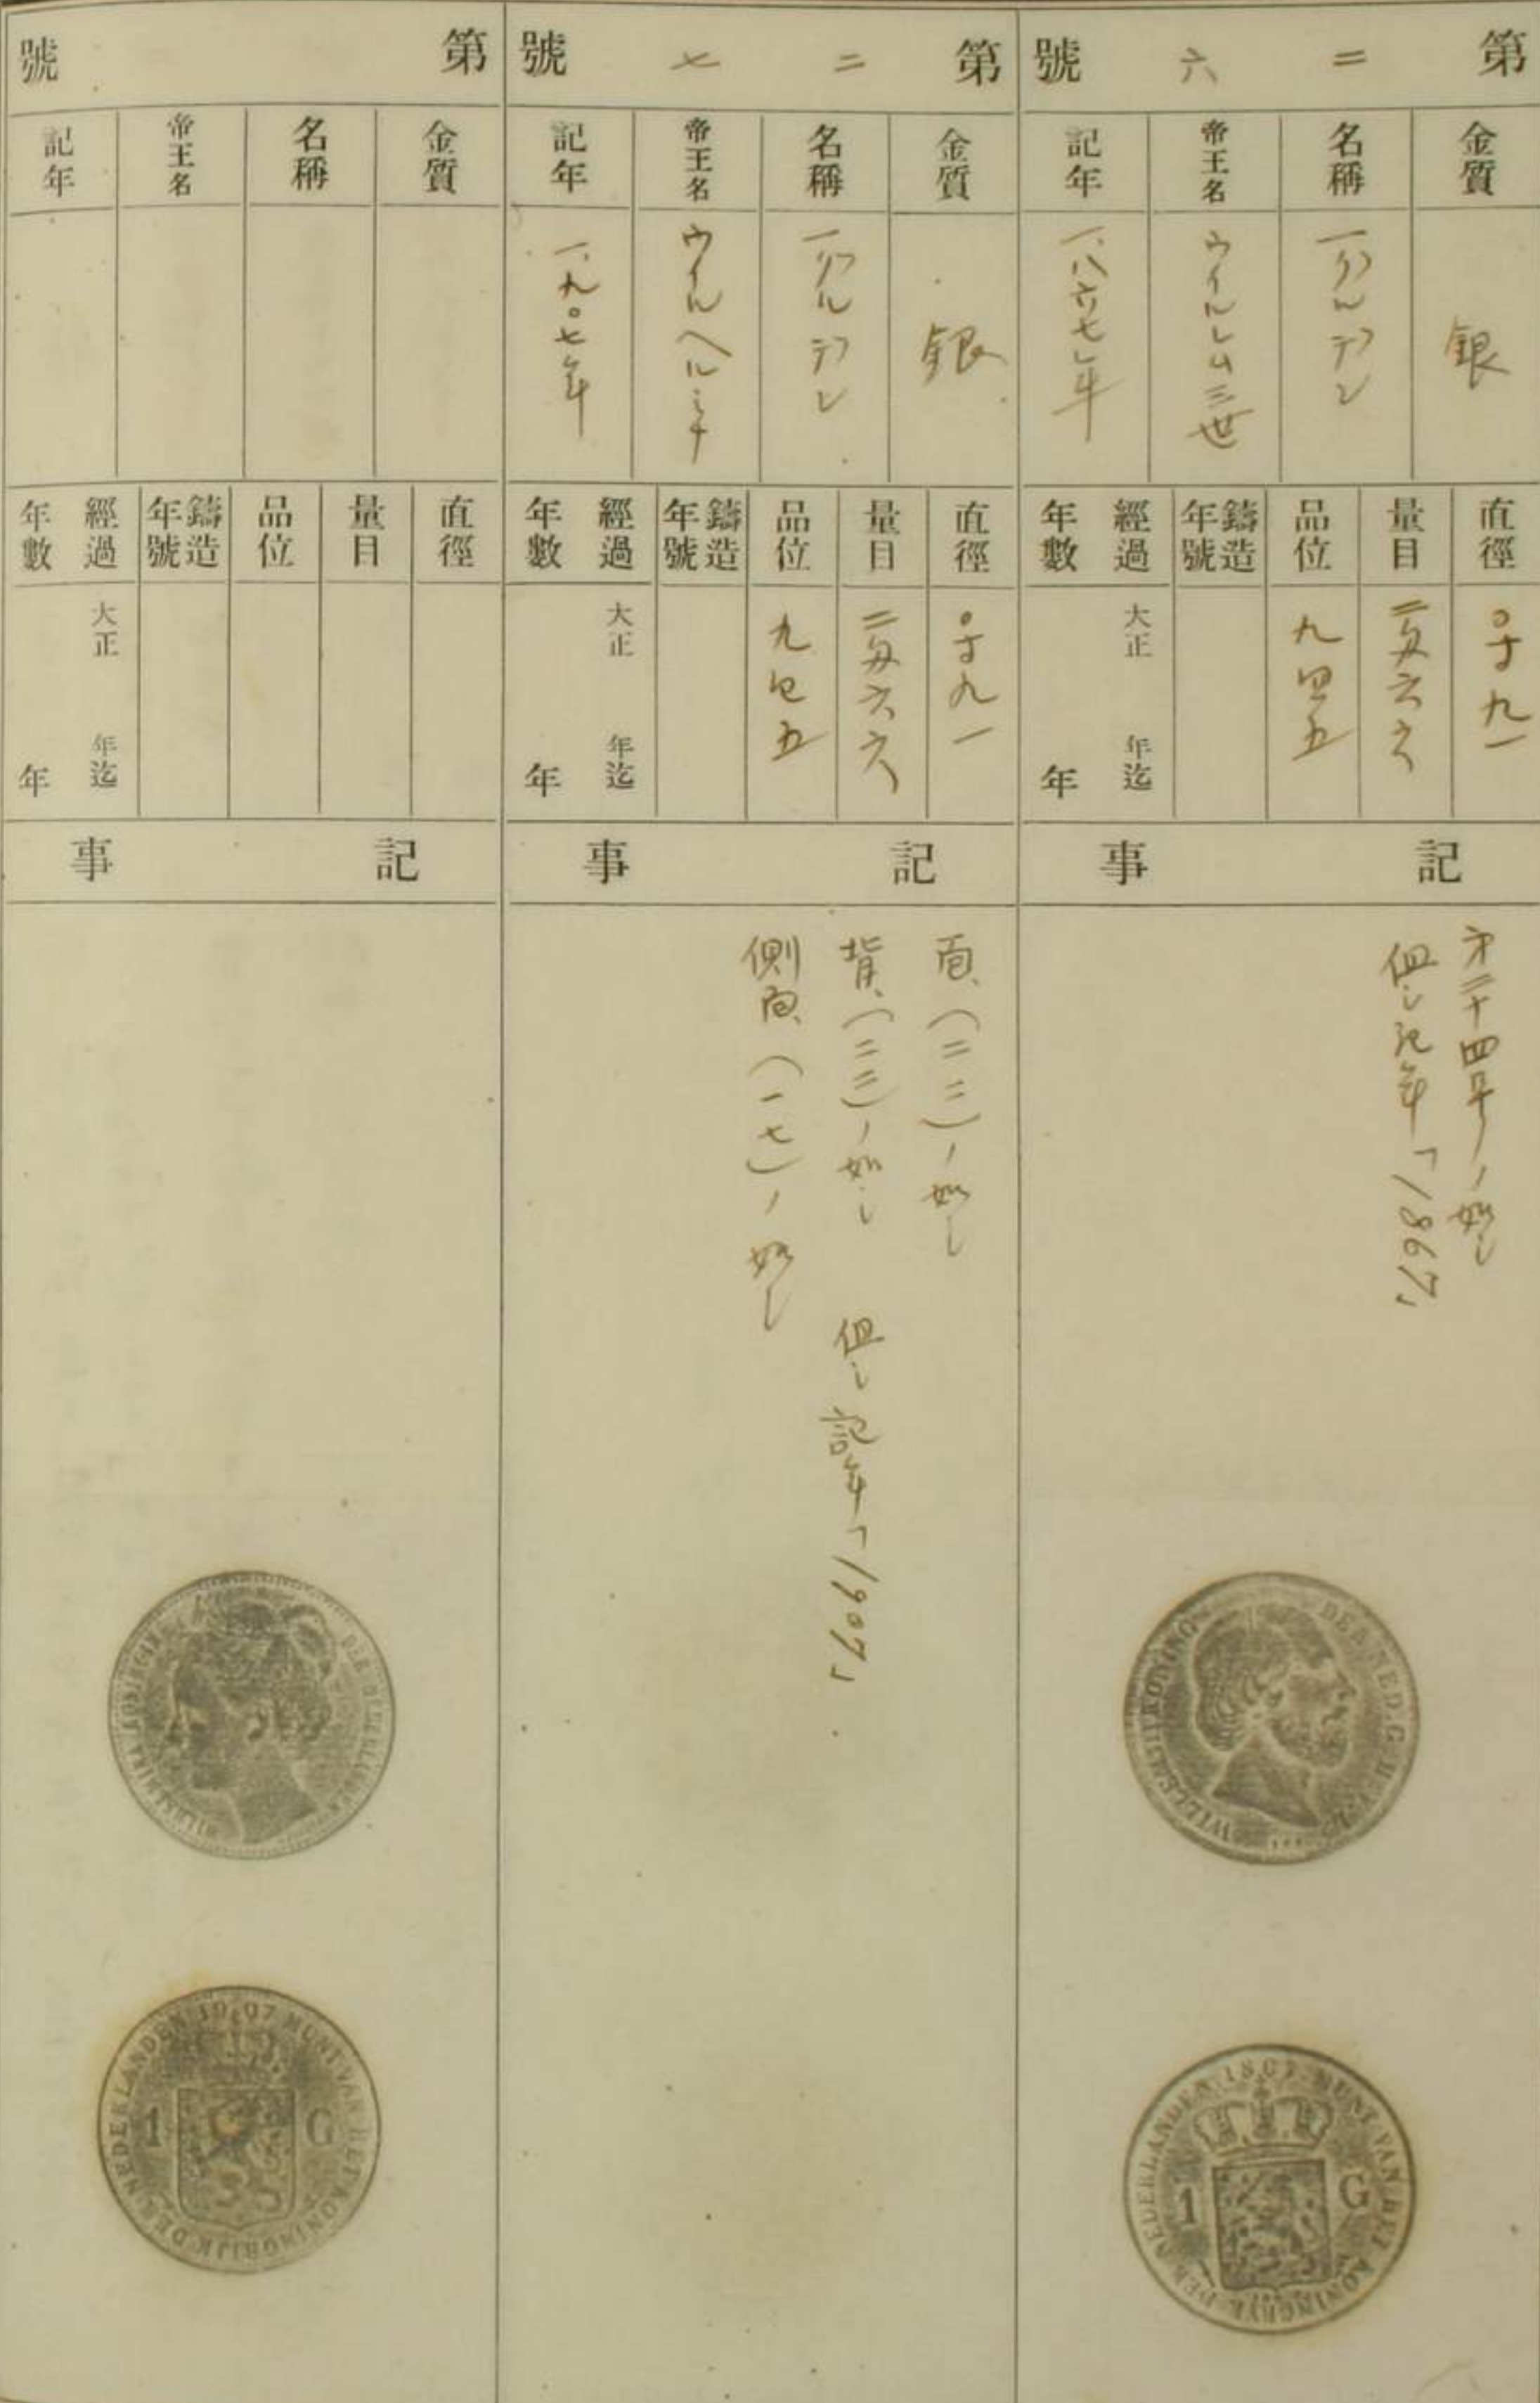 第二六號
金質
銀
名稱
一グルデン
帝王名
ウイルレム三世
記年
一、八六七年
直徑
〇寸九一
量目
二匁六六
品位
九四五
鑄造年號
經過年數
大正 年迄
年
記事
第二十四号ノ如し
但し記年「1867」
WILLEM III KONING DER NED. G. H. V. L.
MUNT VAN HET KONINGRYK DER NEDERLANDEN 1867
1 G
第二七號
金質
銀
名稱
一グルデン
帝王名
ウイルヘルミナ
記年
一、九〇七年
直徑
〇寸九一
量目
二匁六六
品位
九四五
鑄造年號
經過年數
大正 年迄
年
記事
面、(二二)ノ如し
背、(二二)ノ如し 但し記年「1907」
側面、(一七)ノ如し
第 號
金質
名稱
帝王名
記年
直徑
量目
品位
鑄造年號
經過年數
大正 年迄
年
記事
DER NEDERLANDEN
MUNT VAN HET KONINGRIJK DER NEDERLANDEN 1907
1 G